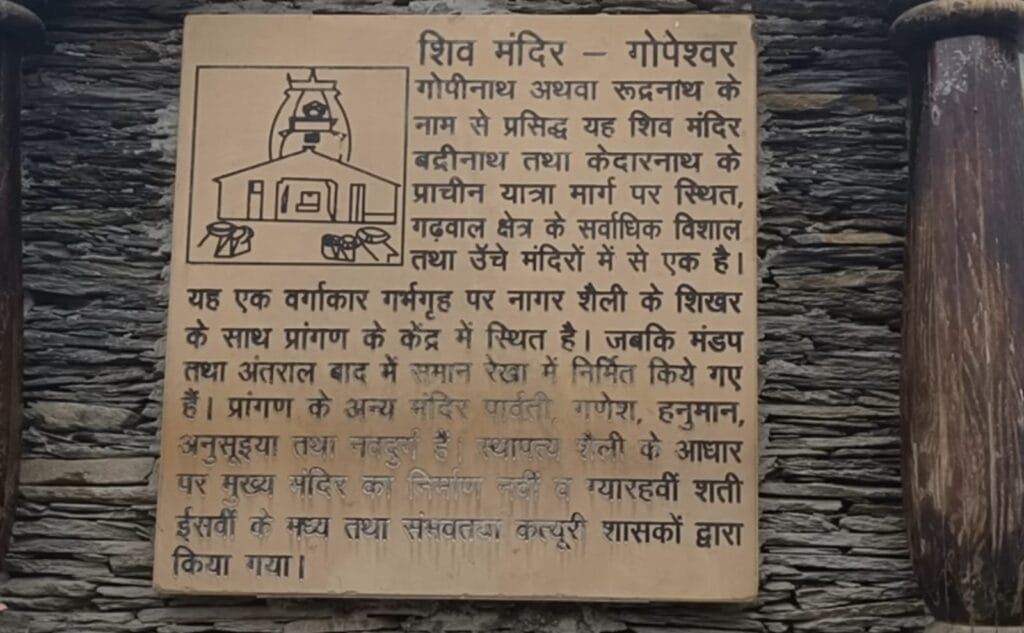 शिव मंदिर – गोपेश्वर
गोपीनाथ अथवा रूद्रनाथ के
नाम से प्रसिद्ध यह शिव मंदिर
बद्रीनाथ तथा केदारनाथ के
प्राचीन यात्रा मार्ग पर स्थित,
गढ़वाल क्षेत्र के सर्वाधिक विशाल
तथा उँचे मंदिरों में से एक है।
यह एक वर्गाकार गर्भगृह पर नागर शैली के शिखर
के साथ प्रांगण के केंद्र में स्थित है। जबकि मंडप
तथा अंतराल बाद में समान रेखा में निर्मित किये गए
हैं। प्रांगण के अन्य मंदिर पार्वती, गणेश, हनुमान,
अनुसूइया तथा नवदुर्गा हैं। स्थापत्य शैली के आधार
पर मुख्य मंदिर का निर्माण नवीं व ग्यारहवीं शती
ईसवीं के मध्य तथा संभवतया कत्यूरी शासकों द्वारा
किया गया।